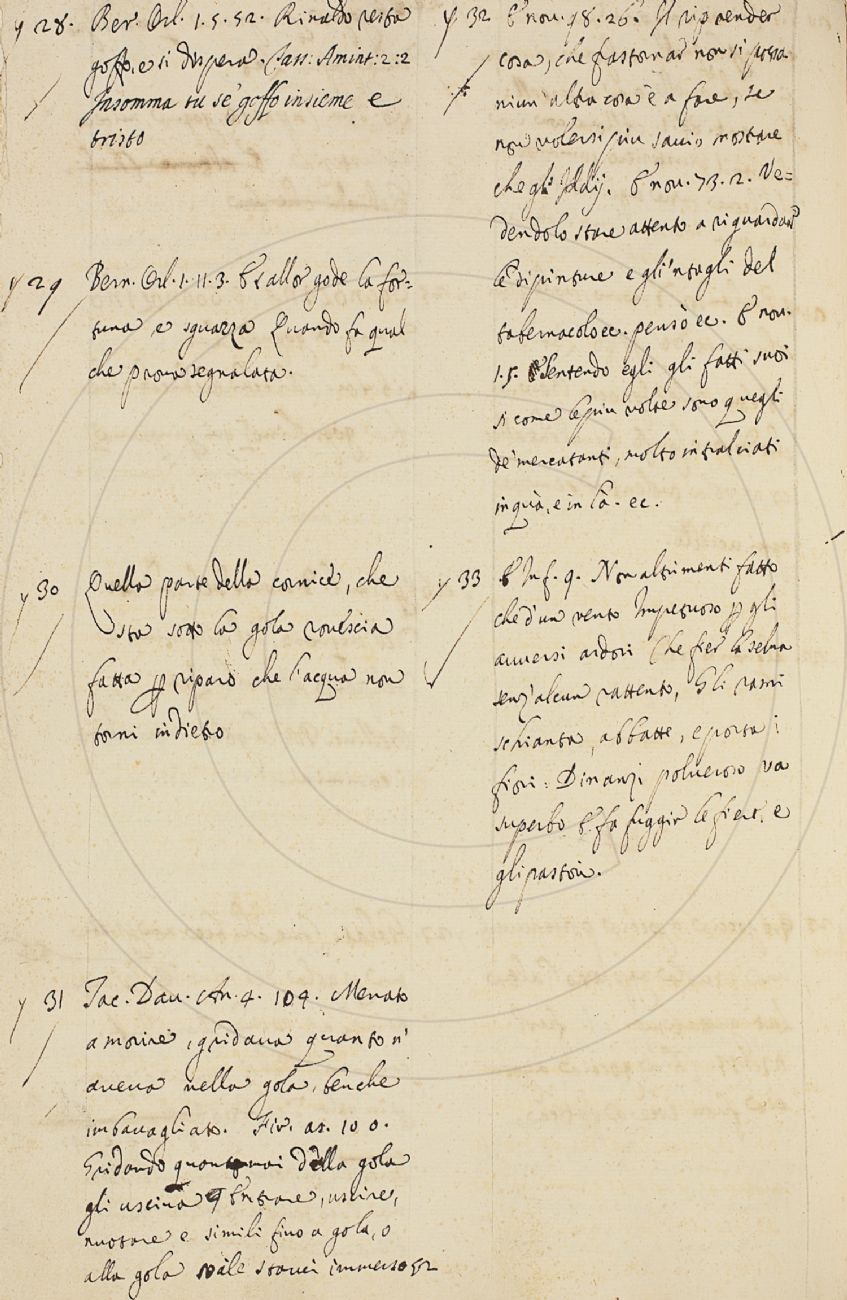 28. Ber. Orl. 1. 5. 52. Rinaldo resta
goffo, e si dispera. Tass: Amint: 2: 2
Insomma tu se' goffo insieme e
tristo
29 Bern. Orl. 1. 11. 3. E allor gode la for=
tuna e sguazza Quando fa qual
che prova segnalata.
30 Quella parte della cornice, che
sta sotto la gola rovescia
fatta p riparo che l'acqua non
torni indietro
31 Tac. Dav. Ann. 4. 104. Menato
a morire, gridava quanto n'
aveva nella gola, benche
imbavagliato. Fir. as. 100.
Gridando quanto mai della gola
gli usciva Entrare, uscire,
nuotare e simili fino a gola, o
alla gola vale starvi immerso 52
32 B nov. 98. 26. Il riprender
cosa, che frastornar non si possa
niun'altra cosa è a fare, se
non volersi più savio mostrare
che gl' Iddij. B nov. 73. 2. Ve=
dendolo stare attento a riguardar
le dipinture e gl'intagli del
tabernacolo ec. pensò ec. B nov.
1. 5. Sentendo egli gli fatti suoi
si come le più volte sono quegli
de' mercatanti, molto intralciati
in quà, e in là. ec.
33 Inf. 9. Non altrimenti fatto
che d'un vento Impetuoso p gli
avversi ardori Che fier la selva
senz'alcun rattento, Gli rami
schianta, abbatte, e porta i
fiori: Dinanzi polveroso va
superbo E fa fuggir le fiere, e
gli pastori.